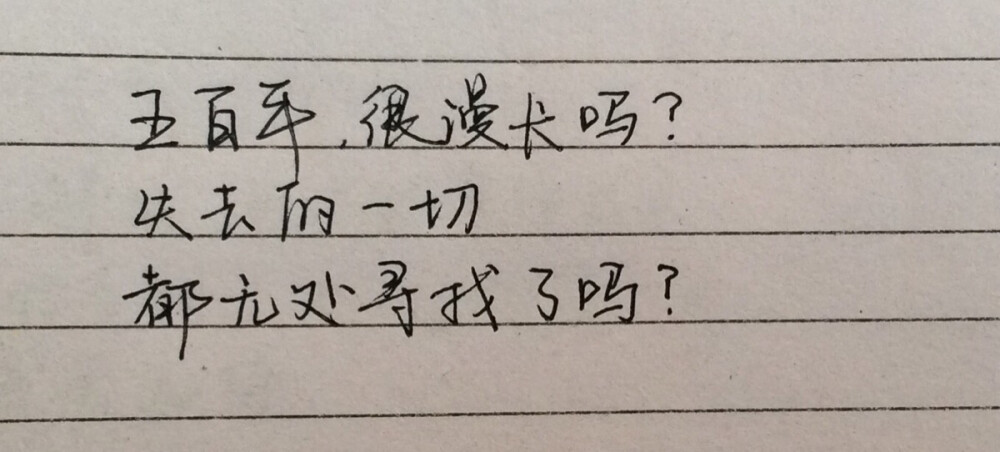 五百年,很漫长吗?
失去的一切
都无处寻找了吗?